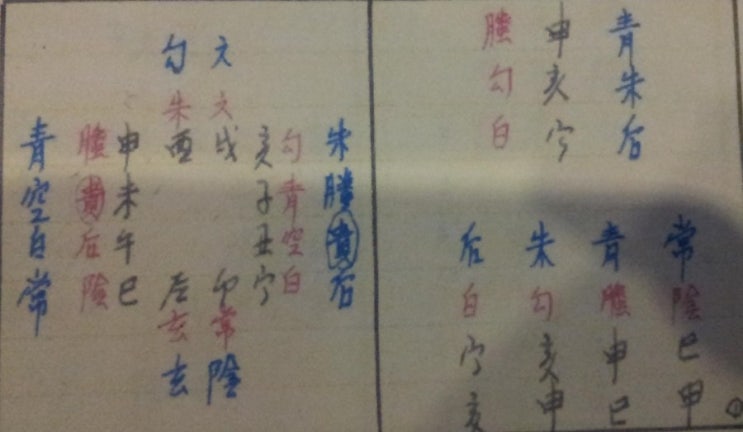 青朱后
申亥宁
螣勾白
常陰巳甲
青螣申巳
朱勾亥申
后白宁亥
朱螣貴后
勾青空白
亥子丑宁
六六戌
卯常陰
勾朱酉
辰玄玄
申未午巳
螣貴后陰
青空白常